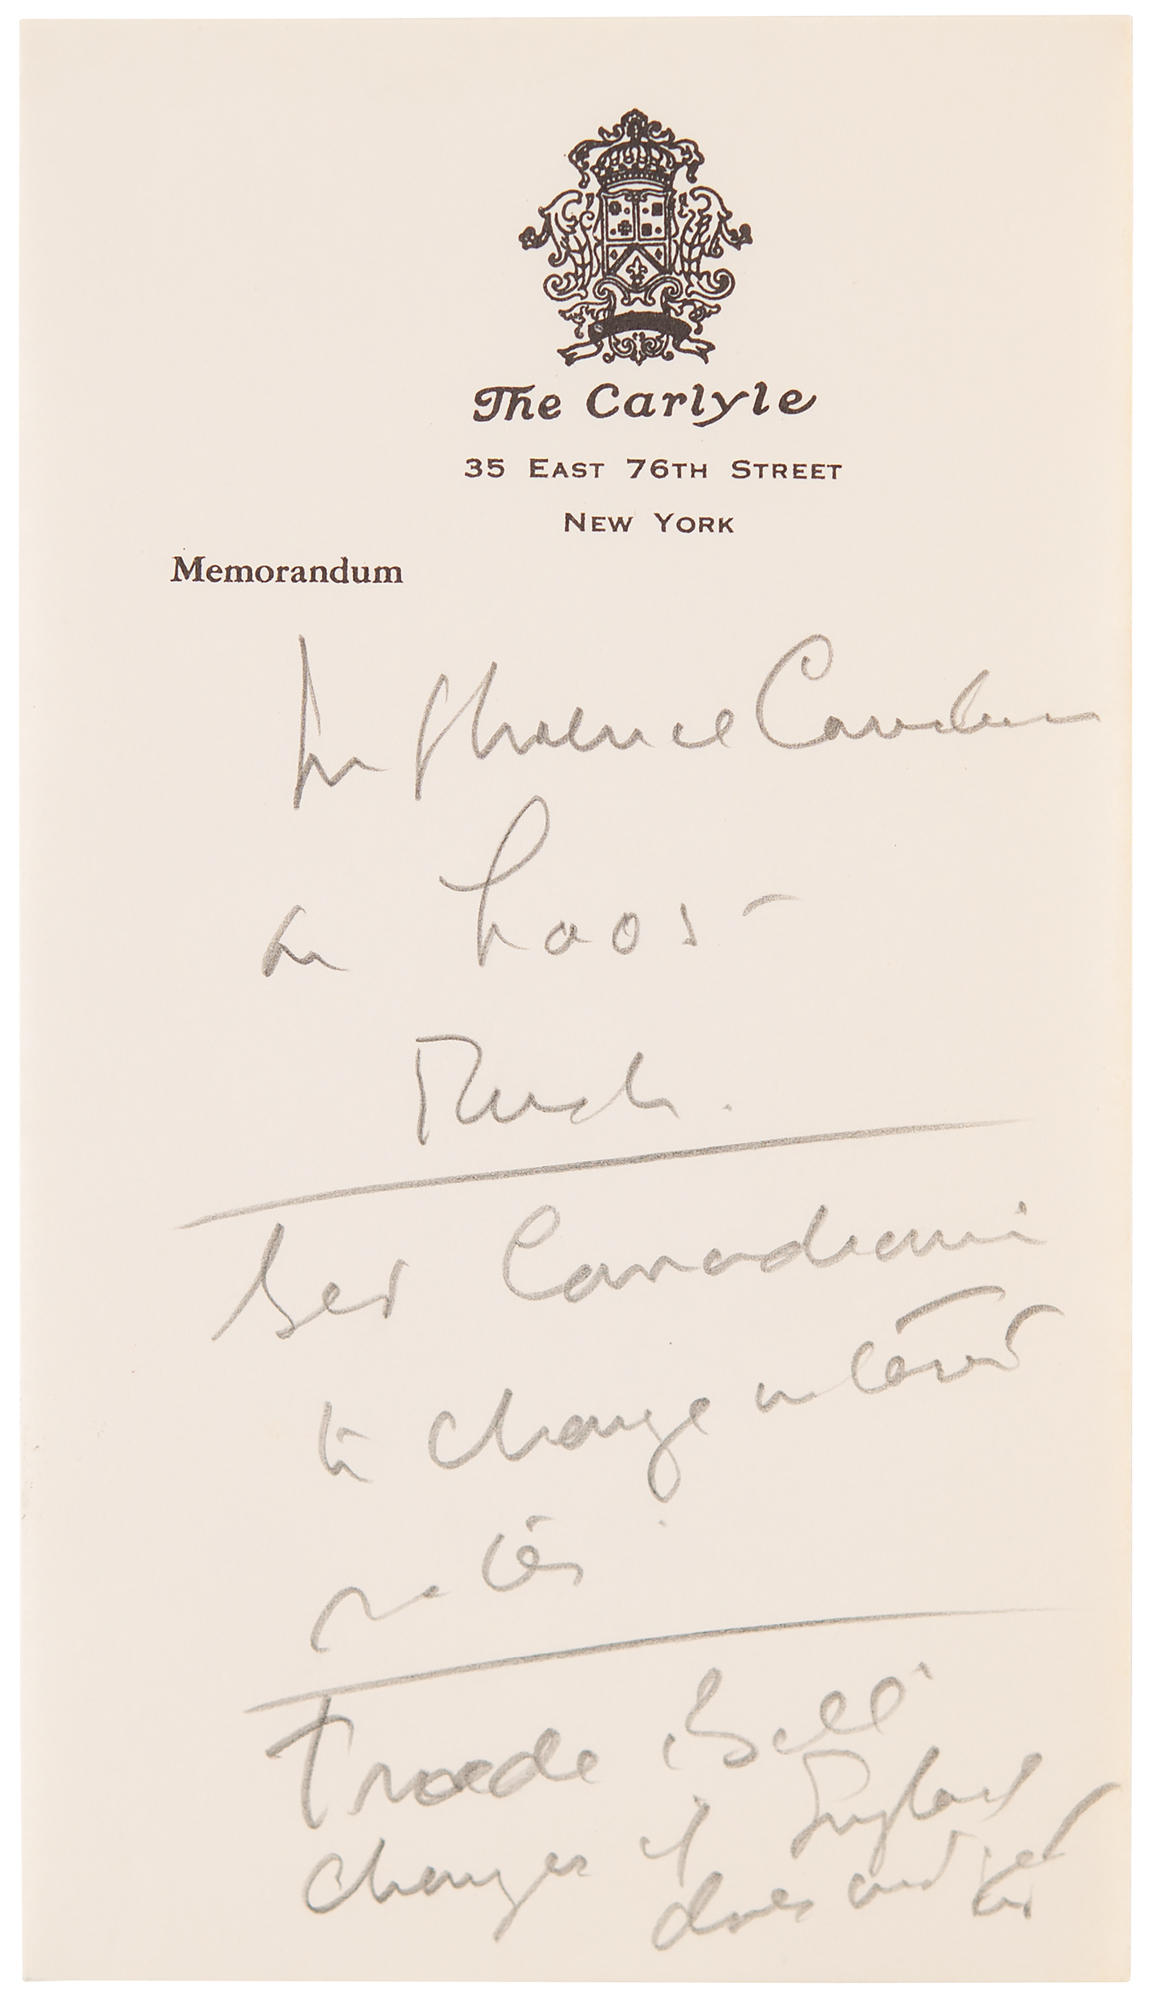 The Carlyle
35 East 76th Street
New York
Memorandum
Influence Canadian
on Laos -
Rusk.
Get Canadians
to change interest
rates
Trade Bill
changes if England
does not get
in